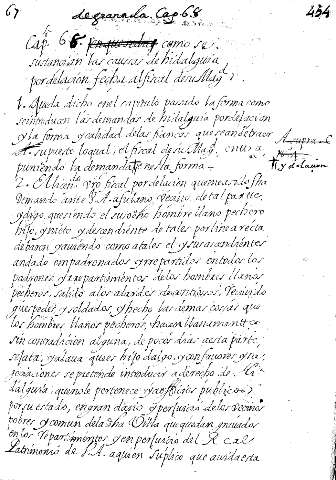 67 de granada. Cap. 68 434
Cap. 68. como se
sustancian las causas de hidalguia
por delacion, fecha al fiscal de su Mag.d
1. Queda dicho en el capitulo pasado la forma como
se introducen las demandas de hidalguia por delacion
y la forma y calidad de las fianças que se an de traer
A supuesto lo qual, el fiscal de su Mag.d
A supra
y delacion
poniendo la demanda en esta forma
2. El licen.do fiscal por delacion que
demando ante V. A. a fulano Vecino de tal parte,
y digo, que siendo el susodicho hombre llano pechero
hijo, y nieto, y descendiente de tales por linea recta
de baron, y aviendo como a tales el y sus ascendientes
andado empadronados y repartidos en todos los
padrones y repartimientos de los hombres llanos
pecheros, salido a los alardes
guespedes, y soldados, y hecho las demas cosas que
los hombres llanos pecheros, hacen llanamente
sin contradicion alguna, de pocos dias a esta parte
se jata, y alaua que es hijodalgo, y con fauores y
se pretende introducir a derecho de
dalguia, que no le pertenece y a officios publicos
por su estado, en gran daño, y perjuicio de los vecinos
pobres y comun de la dha Villa que quedan grauados
en los repartimientos y en perjuicio del Real
Patrimonio de V. A. a quien suplico que auida esta